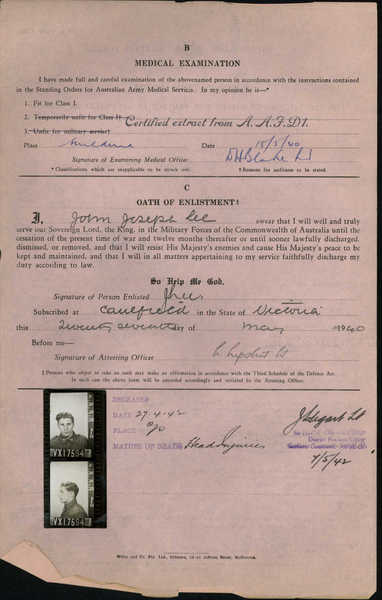 B
MEDICAL EXAMINATION
I have made full and careful examination of the abovenamed person in accordance with the instructions contained
in the Standing Orders for Australian Army Medical Service. In my opinion he is—*
1. Fit for Class I.
2. Temporarily unfit for Class I†
Certified extract from A.A.F.D1.
3. Unfit for military service†
Place Mildura Date 15/5/40
Signature of Examining Medical Officer
* Classifications which are inapplicable to be struck out. † Reasons for unfitness to be stated.
C
OATH OF ENLISTMENT‡
I, John Joseph Lee swear that I will well and truly
serve our Sovereign Lord, the King, in the Military Forces of the Commonwealth of Australia until the
cessation of the present time of war and twelve months thereafter or until sooner lawfully discharged,
dismissed, or removed, and that I will resist His Majesty's enemies and cause His Majesty's peace to
be kept and maintained, and that I will in all matters appertaining to my service faithfully discharge my
duty according to law.
So Help Me God.
Signature of Person Enlisted
Subscribed at Caulfield in the State of Victoria
this Twenty seventh day of May 1940
Before me—
Signature of Attesting Officer
‡ Persons who object to take an oath may make an affirmation in accordance with the Third Schedule of the Defence Act.
In such case the above form will be amended accordingly and initialed by the Attesting Officer.
DECEASED
DATE 27.4.42
PLACE
NATURE OF DEATH Head Injuries
District Records Office
7/5/42
VX17584
VX17584